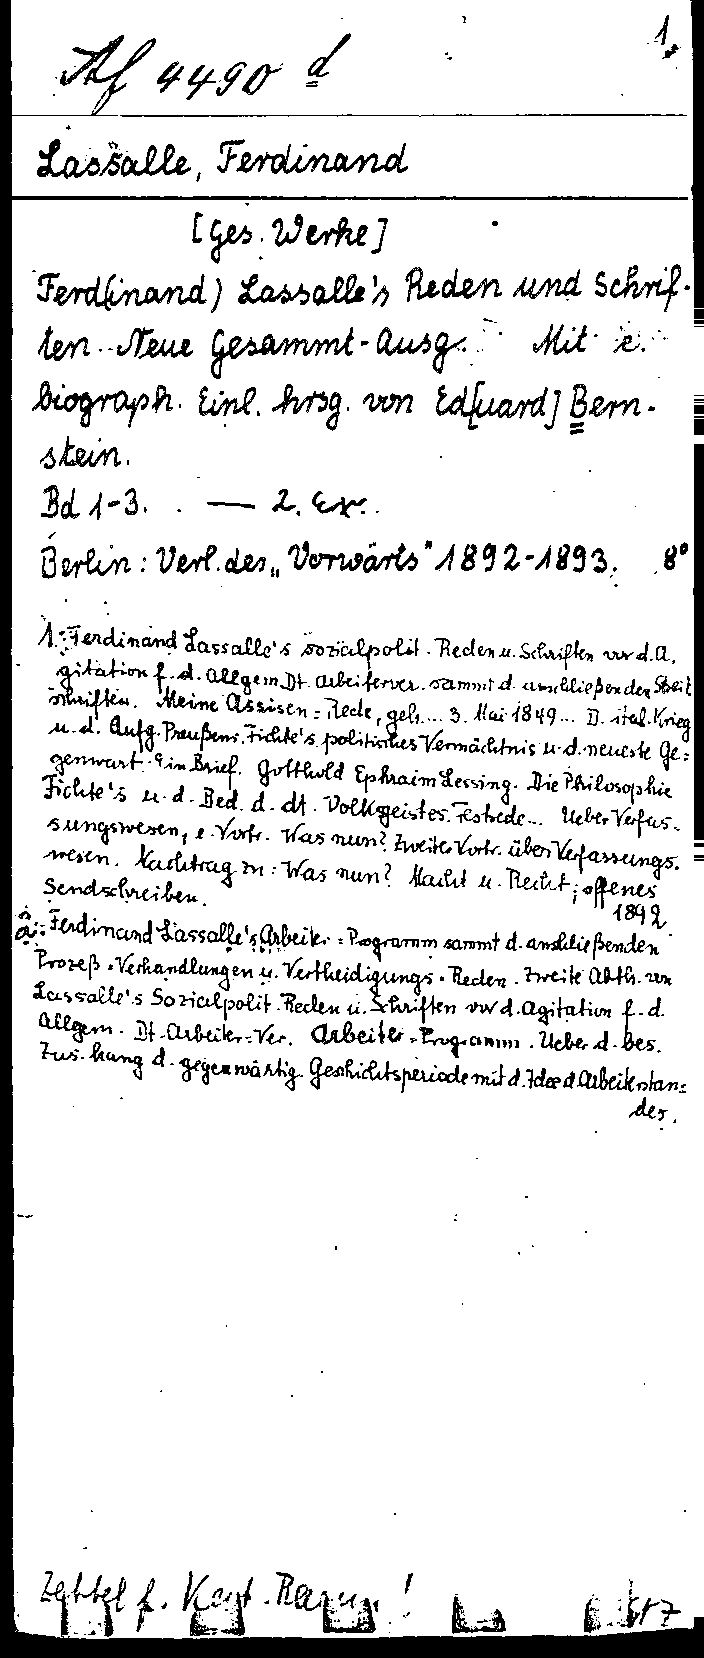 1.
Af 4490 d
Lassalle, Ferdinand
[Ges. Werke]
Ferd(inand) Lassalle's Reden und Schrif-
ten. Neue Gesammt-Ausg. Mit e.
biograph. Einl. hrsg. von Ed[uard] Bern-
stein.
Bd 1-3. — 2. Ex.
Berlin: Verl. des „Vorwärts" 1892-1893. 8°
1: Ferdinand Lassalle's sozialpolit. Reden u. Schriften vor d. A,
gitation f. d. Allgem. Dt. Arbeiterver. sammt d. anschließenden Streit
schriften. Meine Assisen=Rede, geh.... 3. Mai 1849... D. ital. Krieg
u. d. Aufg. Preußens. Fichte's politisches Vermächtnis u. d. neueste Ge=
genwart. Ein Brief. Gotthold Ephraim Lessing. Die Philosophie
Fichte's u. d. Bed. d. dt. Volksgeistes. Festrede... Ueber Verfas-
sungswesen, e. Vortr. Was nun? Zweiter Vortr. über Verfassungs.
wesen. Nachtrag zu: Was nun? Macht u. Recht; offenes
Sendschreiben.
1892
2: Ferdinand Lassalle's Arbeiter=Programm sammt d. anschließenden
Prozeß-Verhandlungen u. Vertheidigungs-Reden. Zweite Abth. von
Lassalle's Sozialpolit. Reden u. Schriften vor d. Agitation f. d.
Allgem. Dt. Arbeiter=Ver. Arbeiter-Programm. Ueber d. bes.
Zus.hang d. gegenwärtig. Geschichtsperiode mit d. Idee d. Arbeiterstan=
des.
Zettel f. Kat. Raum!